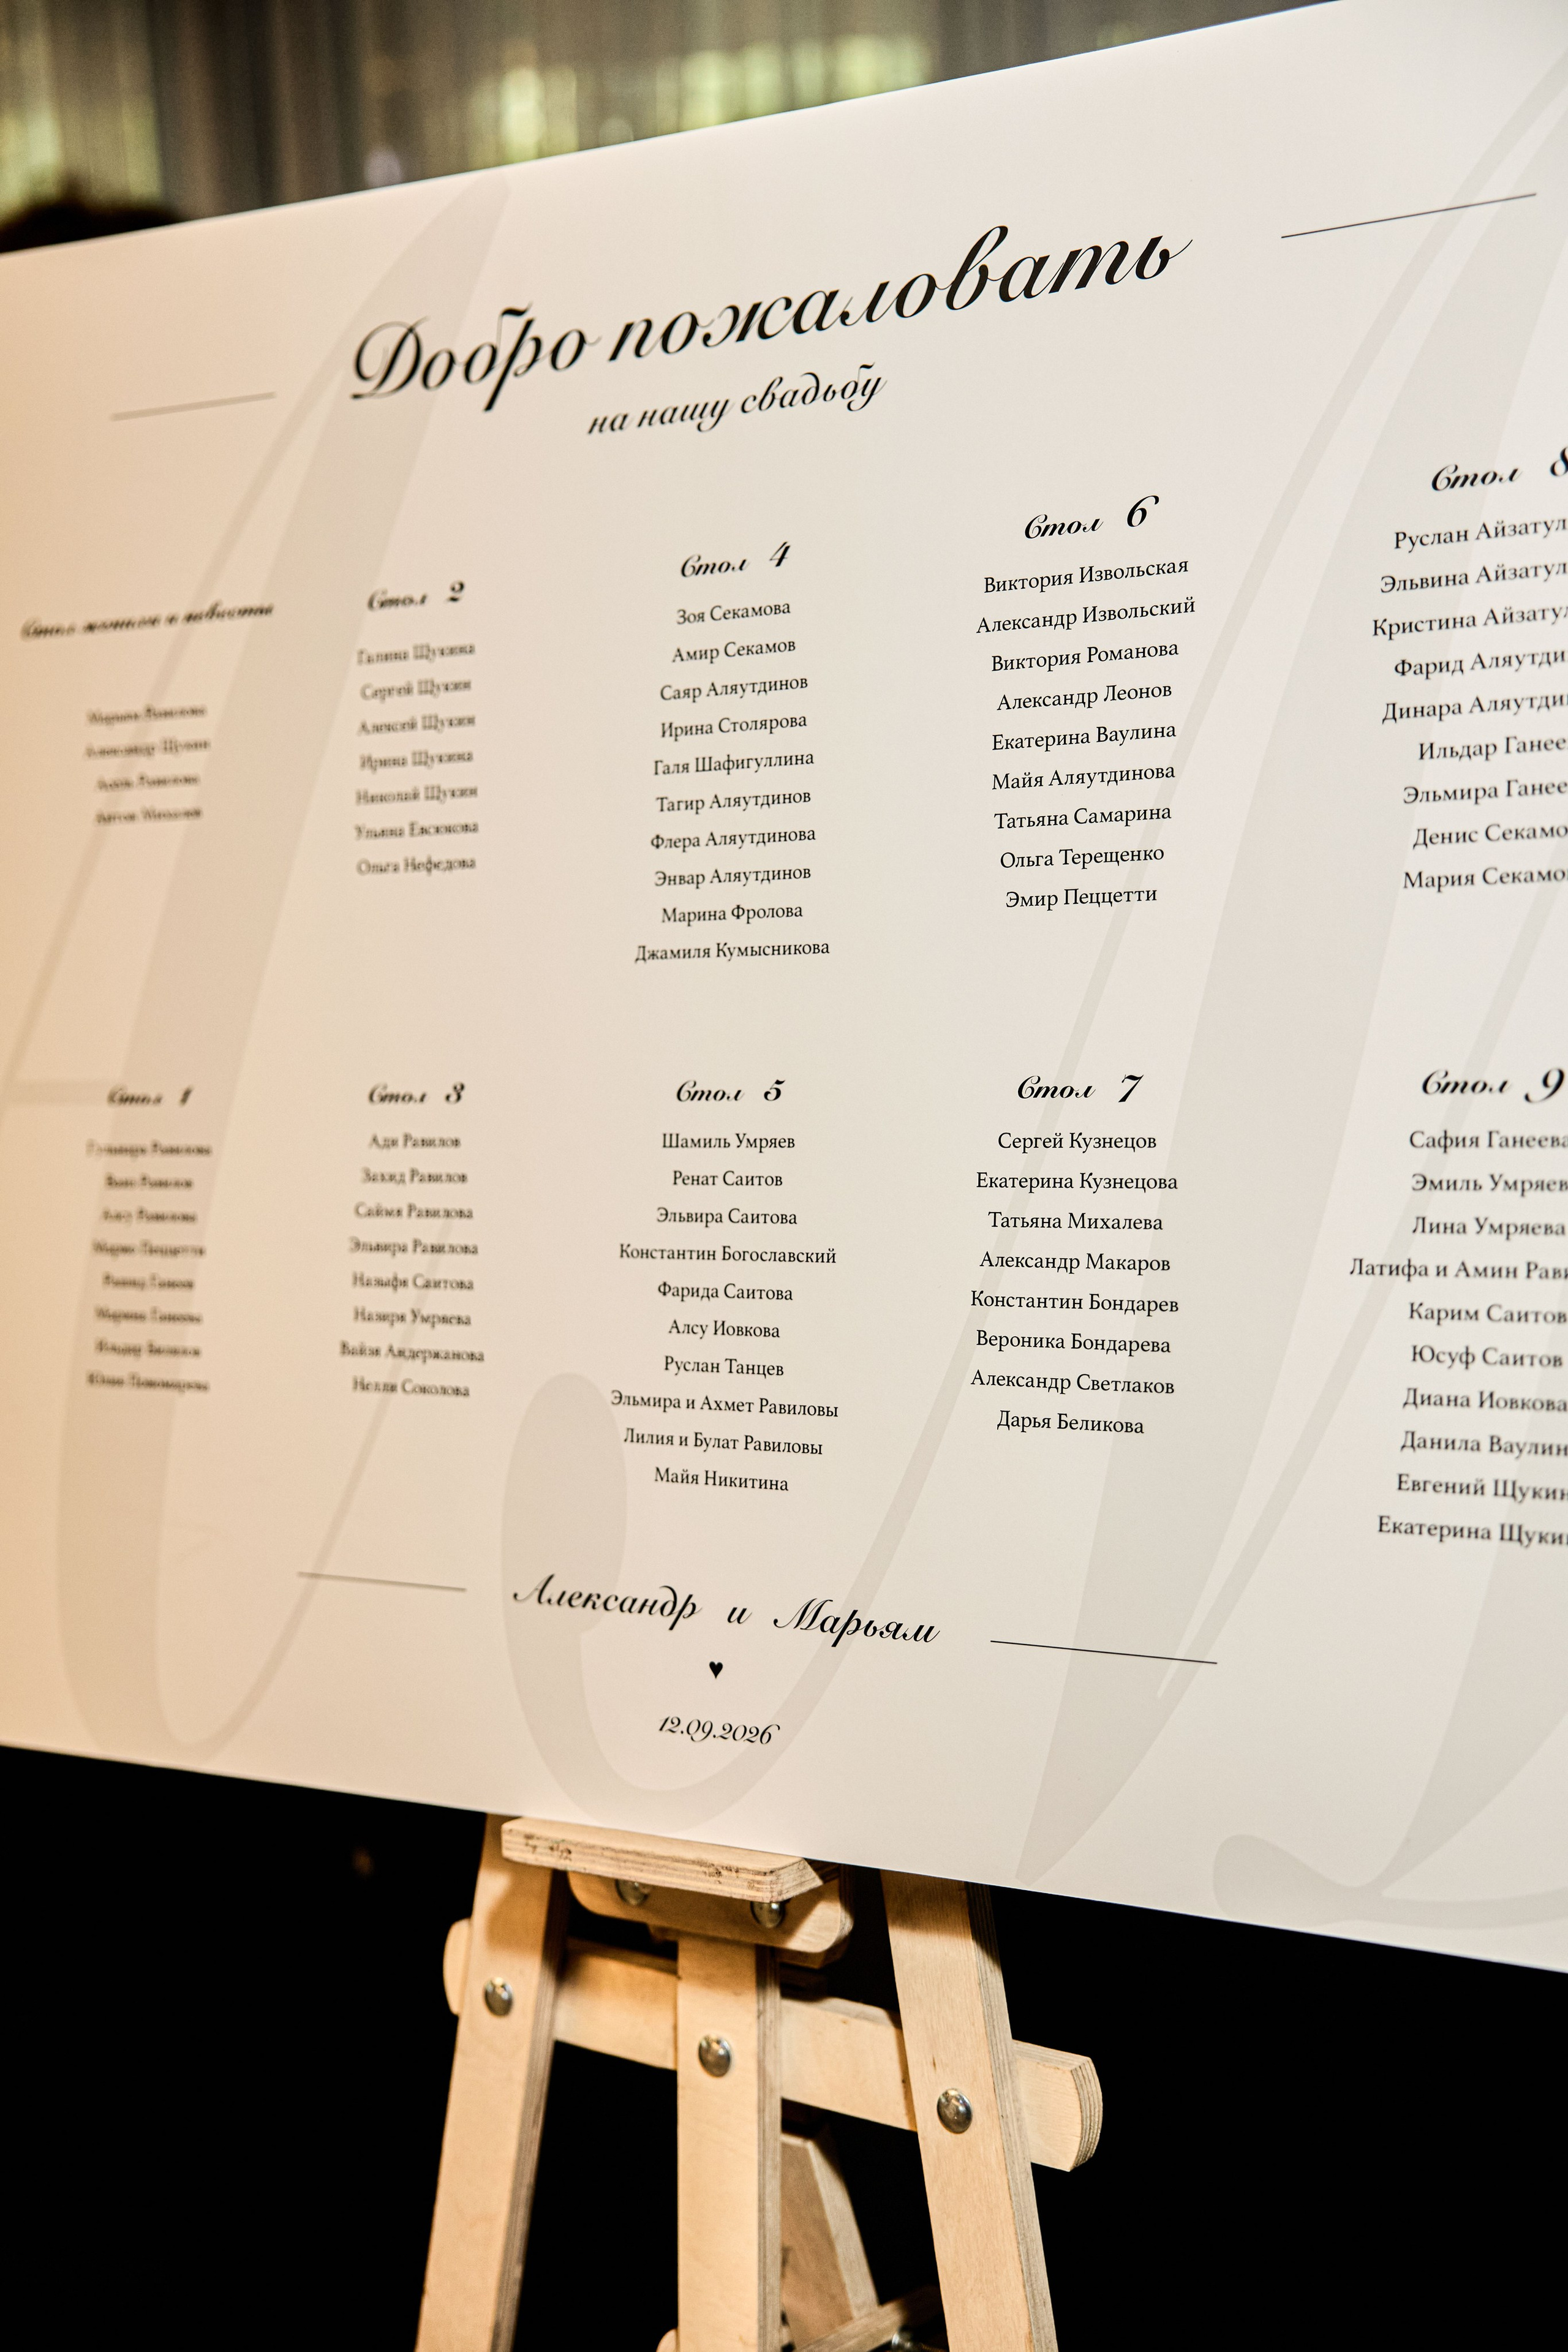 Добро пожаловать
на нашу свадьбу
Стол жениха и невесты
Александр Щукин
Стол 2
Галина Щукина
Сергей Щукин
Алексей Щукин
Ирина Щукина
Николай Щукин
Ульяна Евсюкова
Ольга Нефедова
Стол 4
Зоя Секамова
Амир Секамов
Саяр Аляутдинов
Ирина Столярова
Галя Шафигуллина
Тагир Аляутдинов
Флера Аляутдинова
Энвар Аляутдинов
Марина Фролова
Джамиля Кумысникова
Стол 6
Виктория Извольская
Александр Извольский
Виктория Романова
Александр Леонов
Екатерина Ваулина
Майя Аляутдинова
Татьяна Самарина
Ольга Терещенко
Эмир Пеццетти
Стол 8
Руслан Айзатул
Эльвина Айзатул
Кристина Айзатул
Фарид Аляутди
Динара Аляутди
Ильдар Гане
Эльмира Гане
Денис Секамо
Мария Секамо
Стол 1
Стол 3
Ади Равилов
Захид Равилов
Сайма Равилова
Эльвира Равилова
Назыфа Саитова
Назиря Умряева
Вайзя Андержанова
Нелли Соколова
Стол 5
Шамиль Умряев
Ренат Саитов
Эльвира Саитова
Константин Богославский
Фарида Саитова
Алсу Иовкова
Руслан Танцев
Эльмира и Ахмет Равиловы
Лилия и Булат Равиловы
Майя Никитина
Стол 7
Сергей Кузнецов
Екатерина Кузнецова
Татьяна Михалева
Александр Макаров
Константин Бондарев
Вероника Бондарева
Александр Светлаков
Дарья Беликова
Стол 9
Сафия Ганеева
Эмиль Умряев
Лина Умряева
Латифа и Амин Рави
Карим Саитов
Юсуф Саитов
Диана Иовкова
Данила Ваулин
Евгений Щукин
Екатерина Щуки
Александр и Марьям
♥
12.09.2026